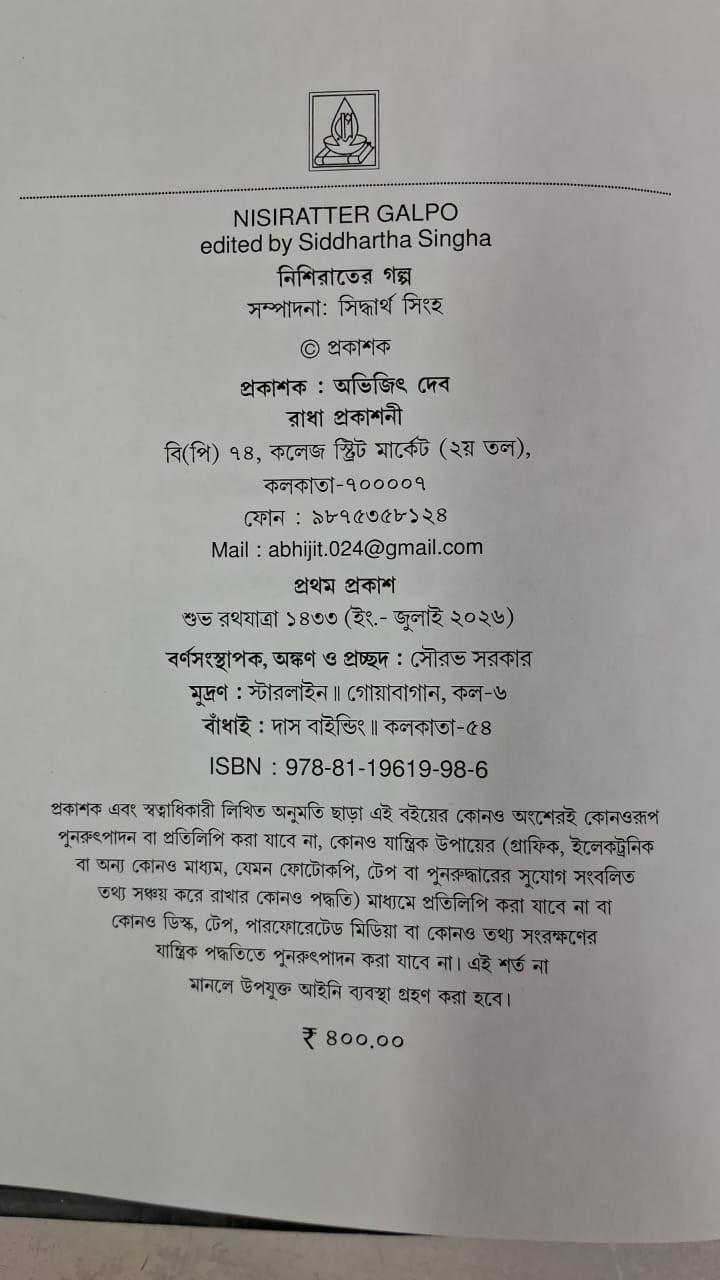 রাপ্র
NISIRATTER GALPO
edited by Siddhartha Singha
নিশিরাতের গল্প
সম্পাদনা: সিদ্ধার্থ সিংহ
© প্রকাশক
প্রকাশক : অভিজিৎ দেব
রাধা প্রকাশনী
বি(পি) ৭৪, কলেজ স্ট্রিট মার্কেট (২য় তল),
কলকাতা-৭০০০০৭
ফোন : ৯৮৭৫৩৫৮১২৪
Mail : abhijit.024@gmail.com
প্রথম প্রকাশ
শুভ রথযাত্রা ১৪৩৩ (ইং.- জুলাই ২০২৬)
বর্ণসংস্থাপক, অঙ্কণ ও প্রচ্ছদ : সৌরভ সরকার
মুদ্রণ : স্টারলাইন॥ গোয়াবাগান, কল-৬
বাঁধাই : দাস বাইন্ডিং॥ কলকাতা-৫৪
ISBN : 978-81-19619-98-6
প্রকাশক এবং স্বত্বাধিকারী লিখিত অনুমতি ছাড়া এই বইয়ের কোনও অংশেরই কোনওরূপ
পুনরুৎপাদন বা প্রতিলিপি করা যাবে না, কোনও যান্ত্রিক উপায়ের (গ্রাফিক, ইলেকট্রনিক
বা অন্য কোনও মাধ্যম, যেমন ফোটোকপি, টেপ বা পুনরুদ্ধারের সুযোগ সংবলিত
তথ্য সঞ্চয় করে রাখার কোনও পদ্ধতি) মাধ্যমে প্রতিলিপি করা যাবে না বা
কোনও ডিস্ক, টেপ, পারফোরেটেড মিডিয়া বা কোনও তথ্য সংরক্ষণের
যান্ত্রিক পদ্ধতিতে পুনরুৎপাদন করা যাবে না। এই শর্ত না
মানলে উপযুক্ত আইনি ব্যবস্থা গ্রহণ করা হবে।
₹ ৪০০.০০